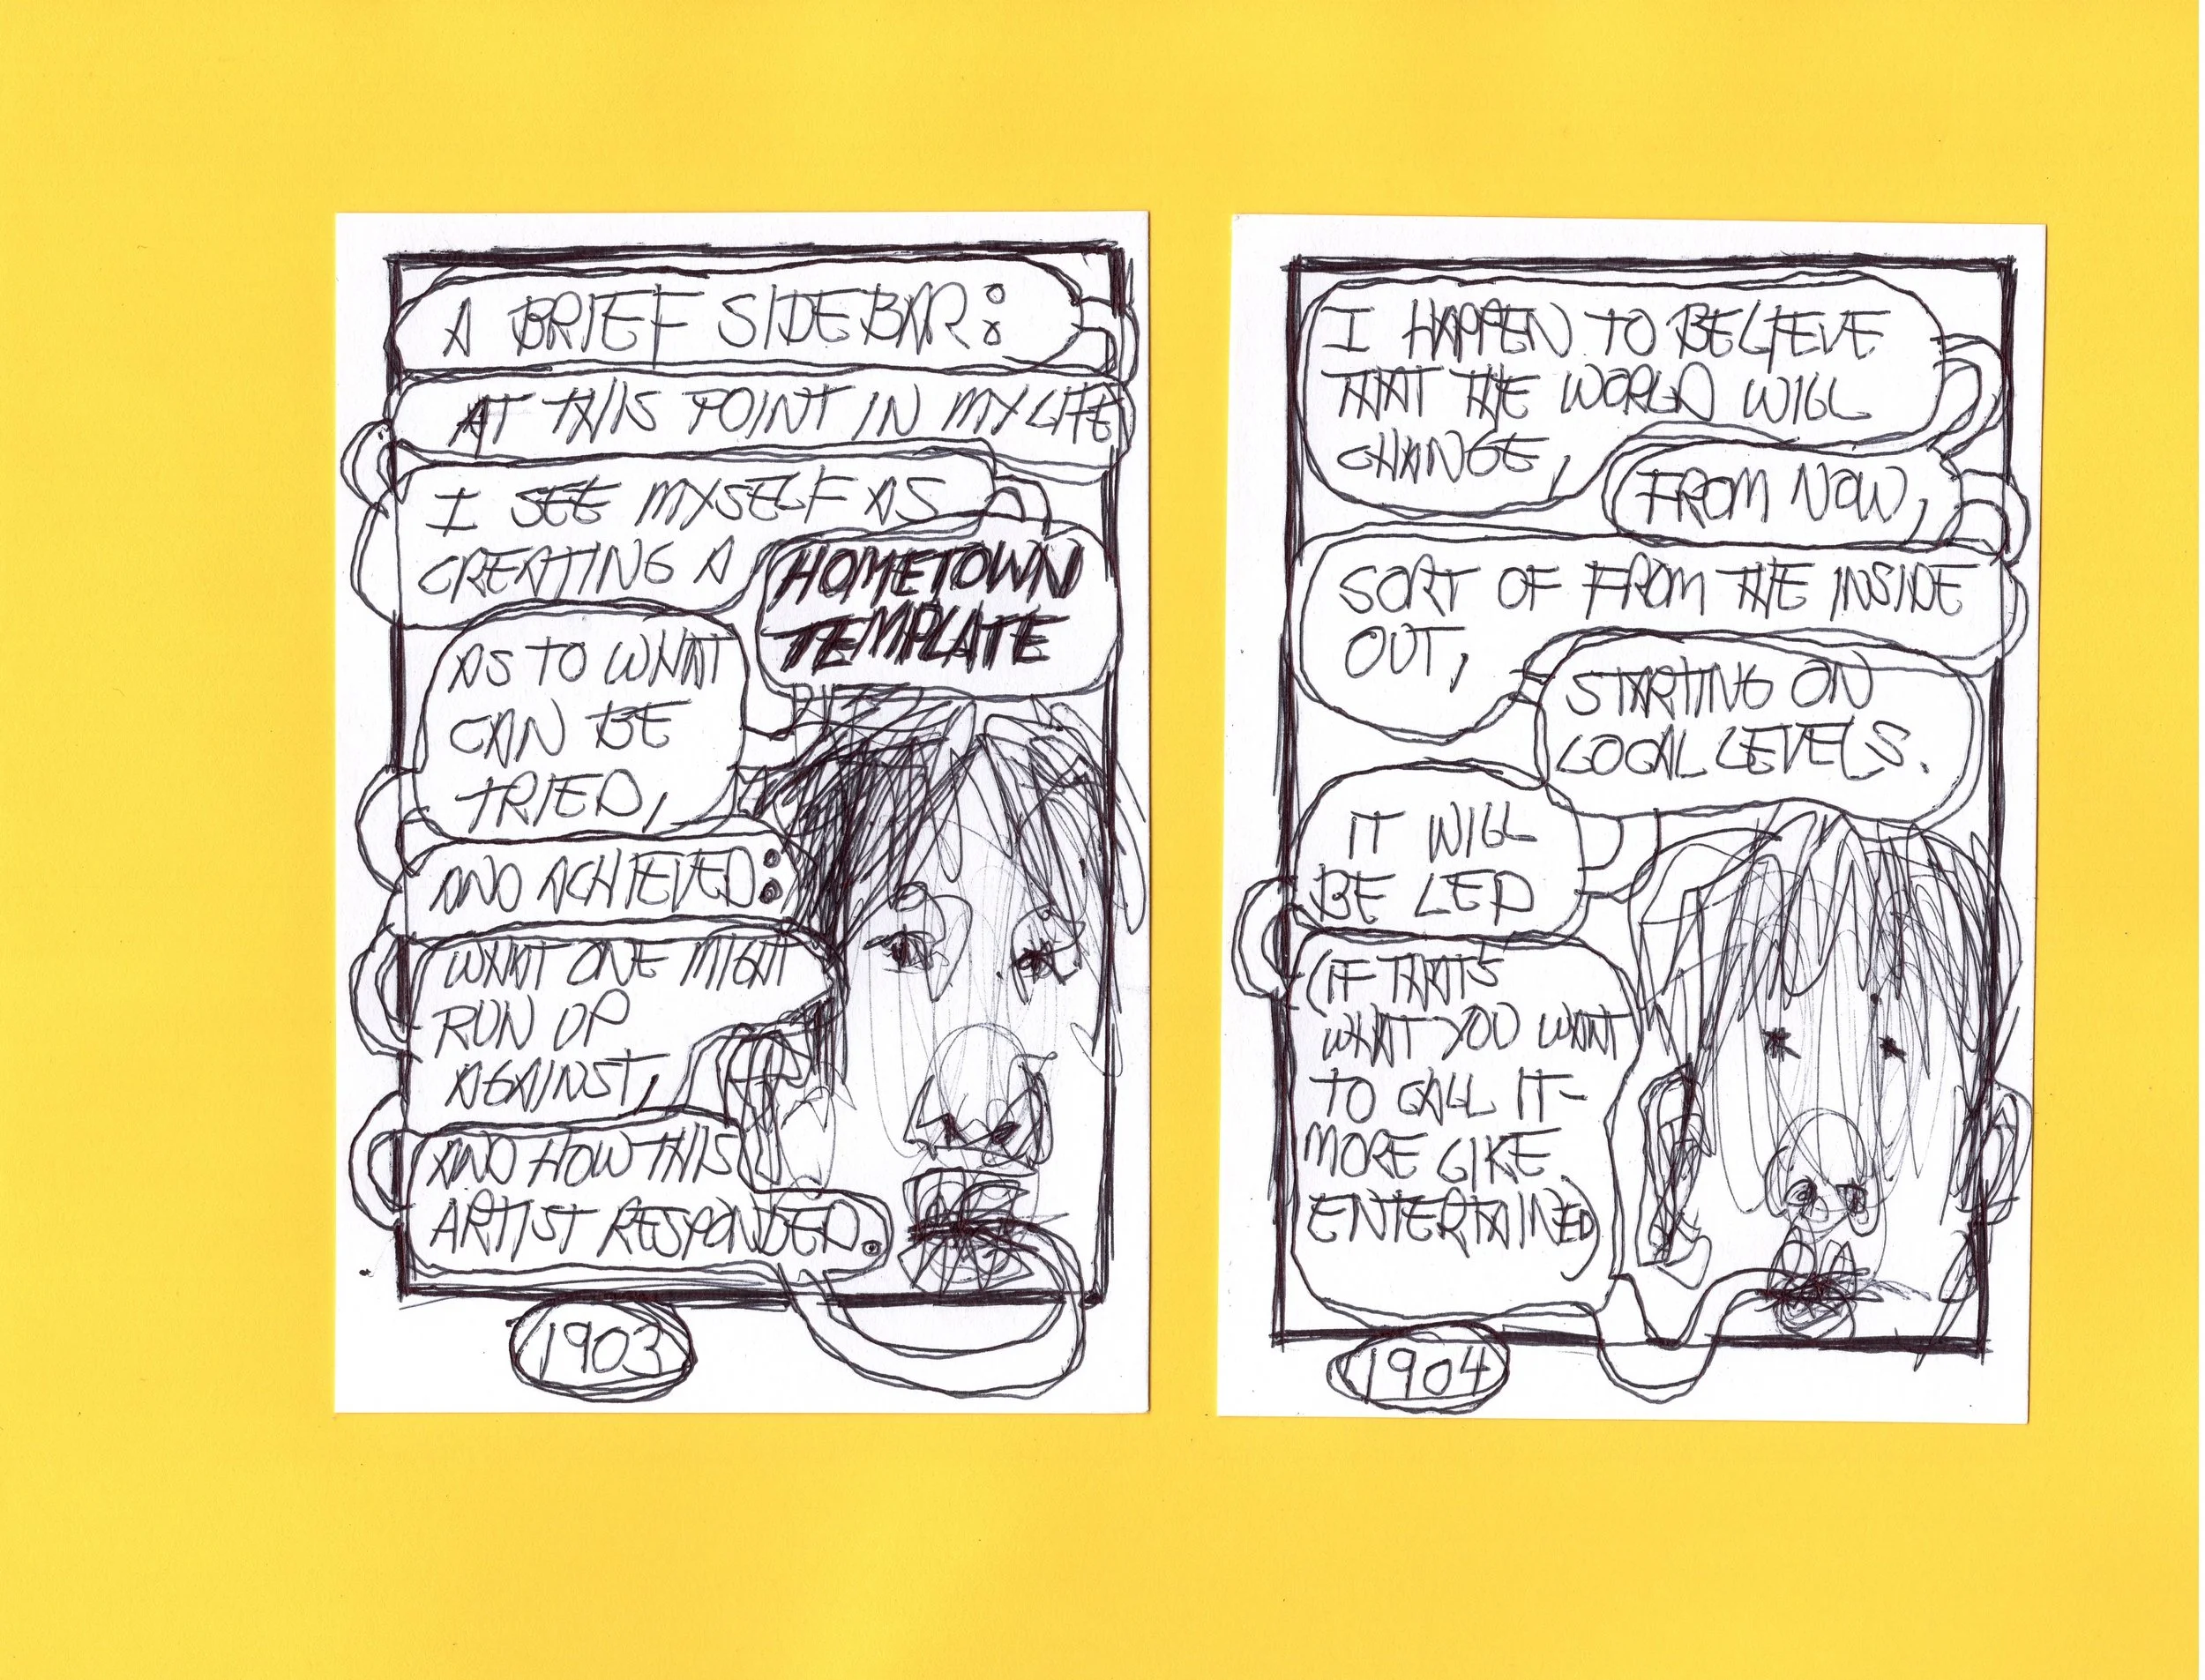 A BRIEF SIDEBAR:
AT THIS POINT IN MY LIFE
I SEE MYSELF AS
CREATING A
HOMETOWN
TEMPLATE
AS TO WHAT
CAN BE
TRIED,
AND ACHIEVED:
WHAT ONE MIGHT
RUN UP
AGAINST,
AND HOW THIS
ARTIST RESPONDED.
1903
I HAPPEN TO BELIEVE
THAT THE WORLD WILL
CHANGE,
FROM NOW,
SORT OF FROM THE INSIDE
OUT,
STARTING ON
LOCAL LEVELS.
IT WILL
BE LED
(IF THAT'S
WHAT YOU WANT
TO CALL IT-
MORE LIKE
ENTERTAINED)
1904